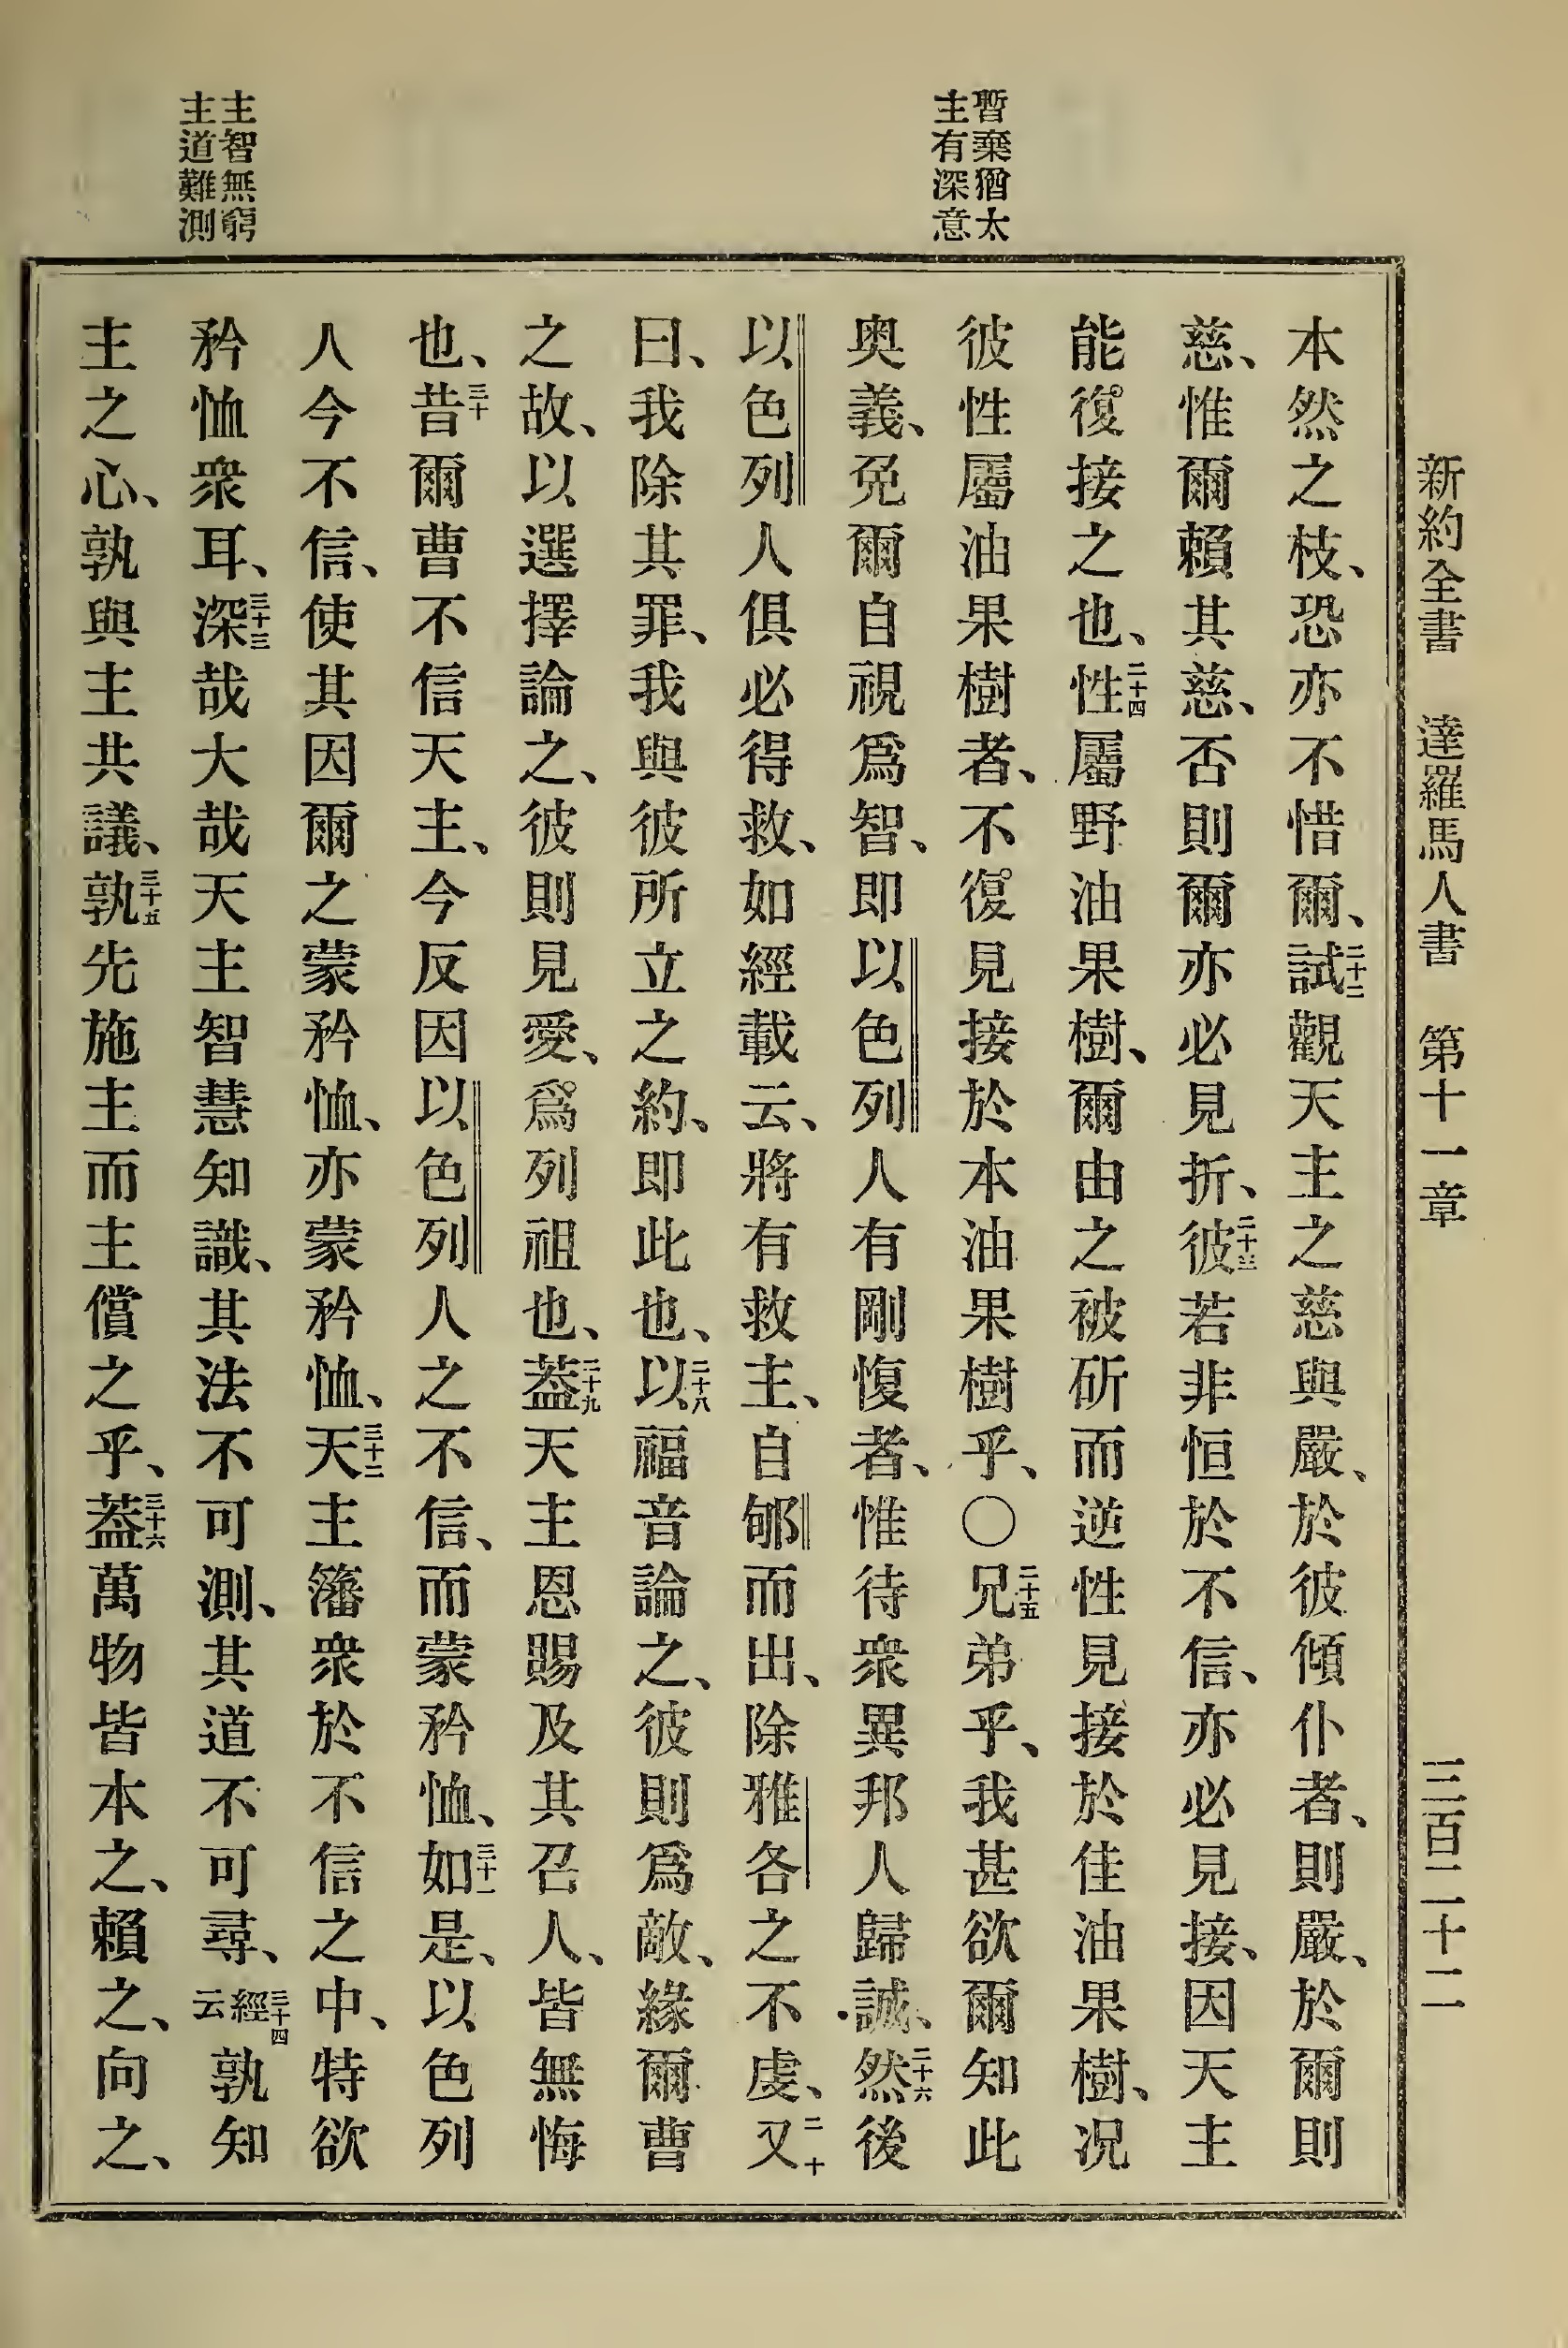 新約全書　達羅馬人書　第十一章　三百二十二
暫棄猶太
主有深意
主智無窮
主道難測
本然之枝、恐亦不惜爾、二十二試觀天主之慈與嚴、於彼傾仆者、則嚴、於爾則
慈、惟爾賴其慈、否則爾亦必見折、二十三彼若非恒於不信、亦必見接、因天主
能復接之也、二十四性屬野油果樹、爾由之被斫而逆性見接於佳油果樹、況
彼性屬油果樹者、不復見接於本油果樹乎、〇二十五兄弟乎、我甚欲爾知此
奧義、免爾自視爲智、即以色列人有剛愎者、惟待衆異邦人歸誠、二十六然後
以色列人俱必得救、如經載云、將有救主、自郇而出、除雅各之不虔、二十又
曰、我除其罪、我與彼所立之約、即此也、二十八以福音論之、彼則爲敵、緣爾曹
之故、以選擇論之、彼則見愛、爲列祖也、二十九蓋天主恩賜及其召人、皆無悔
也、三十昔爾曹不信天主、今反因以色列人之不信、而蒙矜恤、三十一如是、以色列
人今不信、使其因爾之蒙矜恤、亦蒙矜恤、三十二天主籓衆於不信之中、特欲
矜恤衆耳、三十三深哉大哉天主智慧知識、其法不可測、其道不可尋、三十四經云孰知
主之心、孰與主共議、三十五孰先施主而主償之乎、三十六蓋萬物皆本之、賴之、向之、